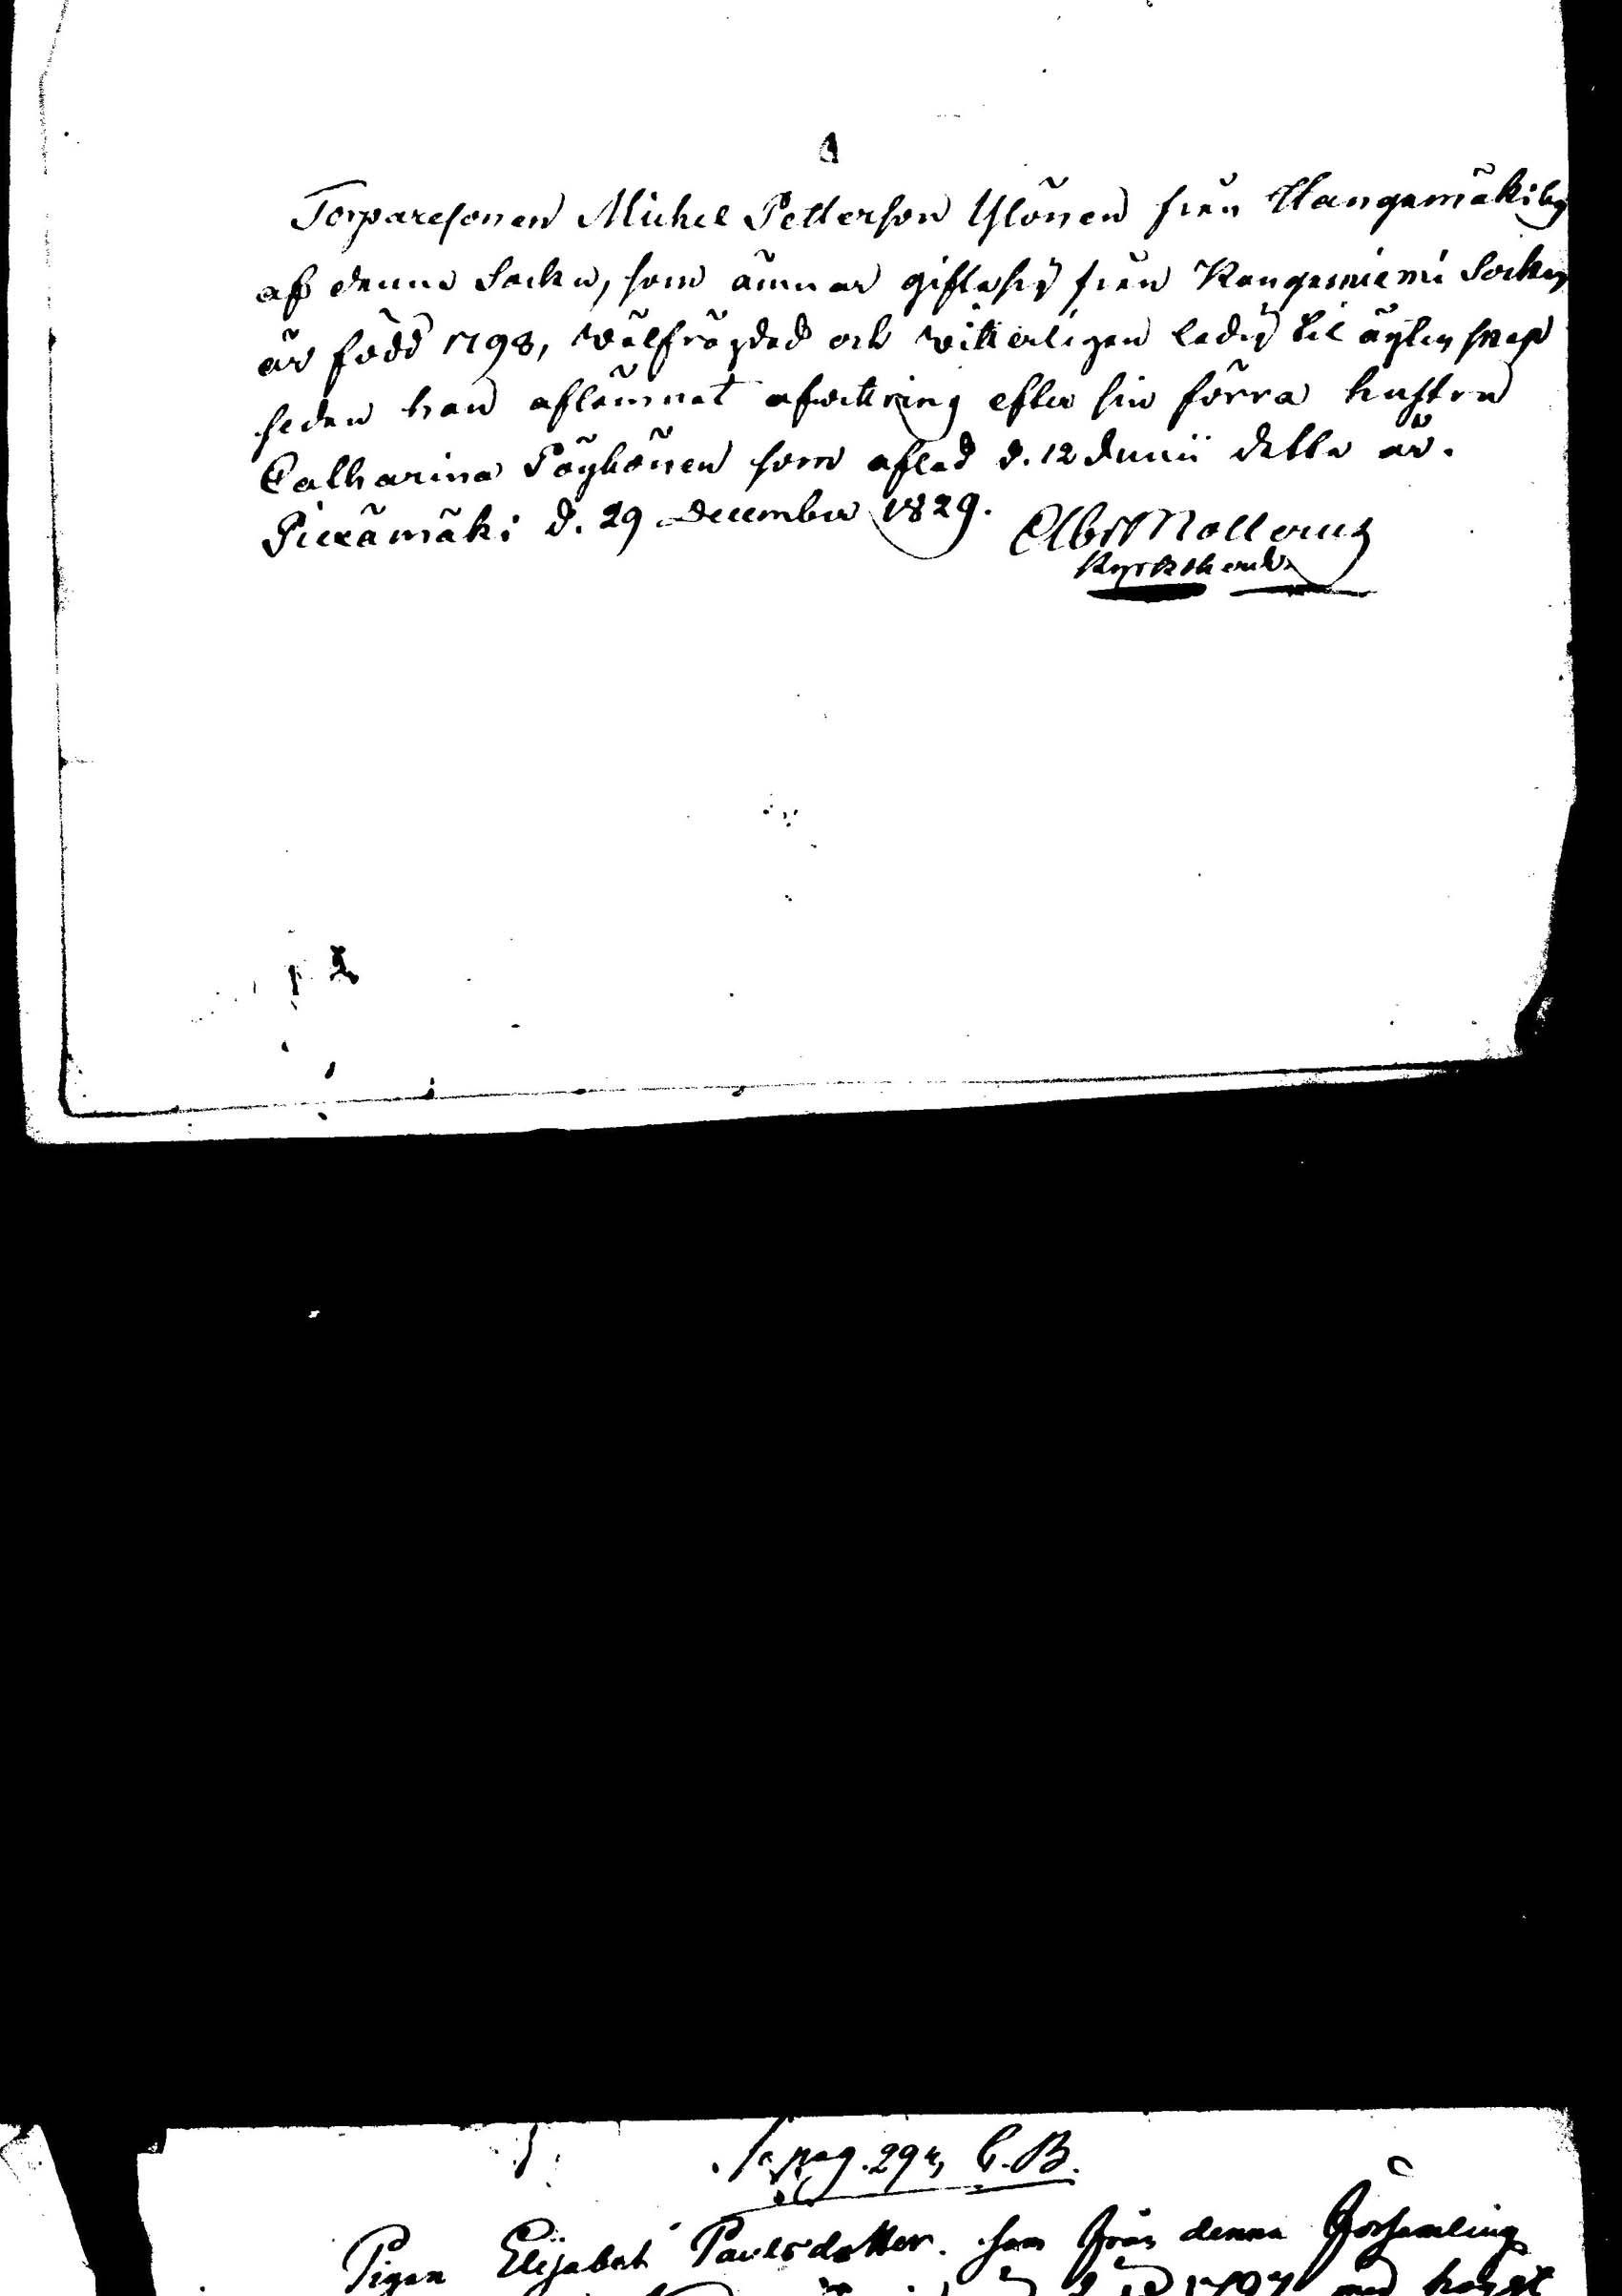 Torparesonen Michel Petterson Ylönen från Hangamäki by
af denna Socken, som ämnar gifta sig från Kangasniemi Socken
är född 1798, wälfrägdad och witterligen ledig til ägtenskap
sedan han aflämnat afwittring efter sin förra hustru
Catharina Pöyhönen som afled d. 12 Junii detta år.
Piexämäki d. 29 December 1829.
Kyrkoherde
/a pag. 294, C. B.
Pigan Elisabet Paulsdotter som från denna Församling